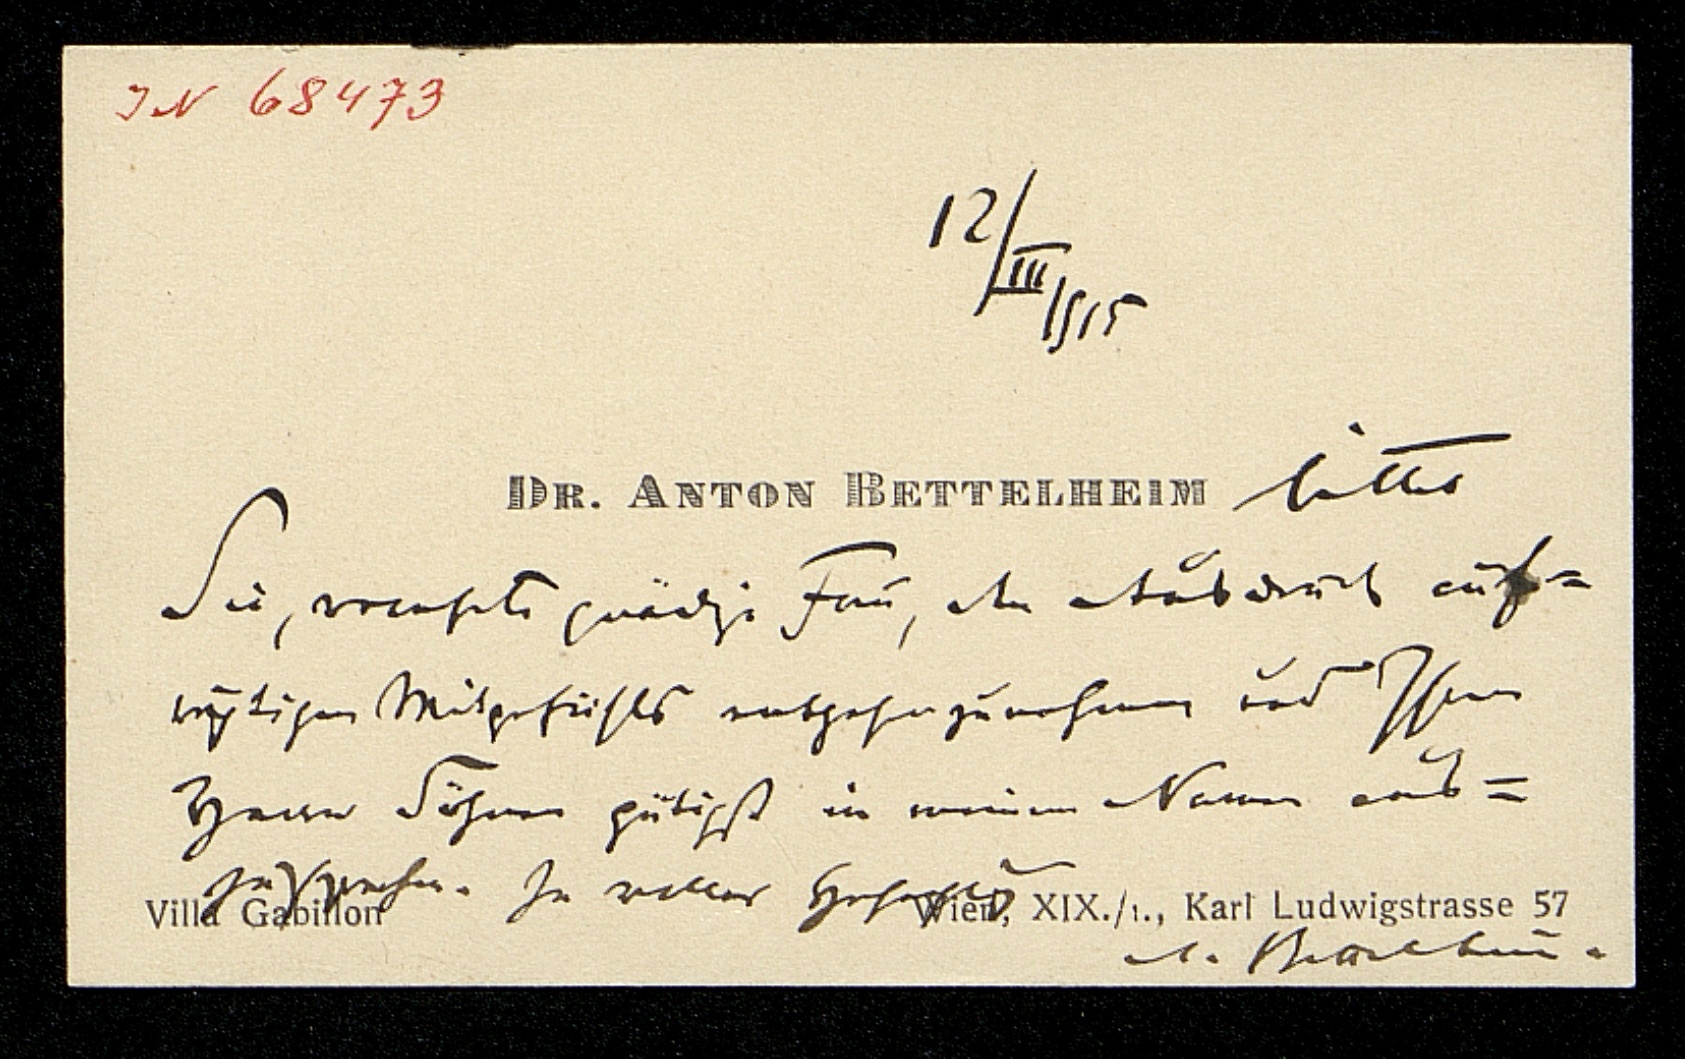 IN 68473
12/III/1915
DR. ANTON BETTELHEIM bittet
Sie, verehrte gnädige Frau, den Ausdruck auf=
richtigen Mitgefühls entgegenzunehmen und Ihren
Herren Söhnen gütigst in meinem Namen aus=
zusprechen. In voller Hochachtg
Villa Gabillon Wien, XIX./1., Karl Ludwigstrasse 57
A. Bettelheim.